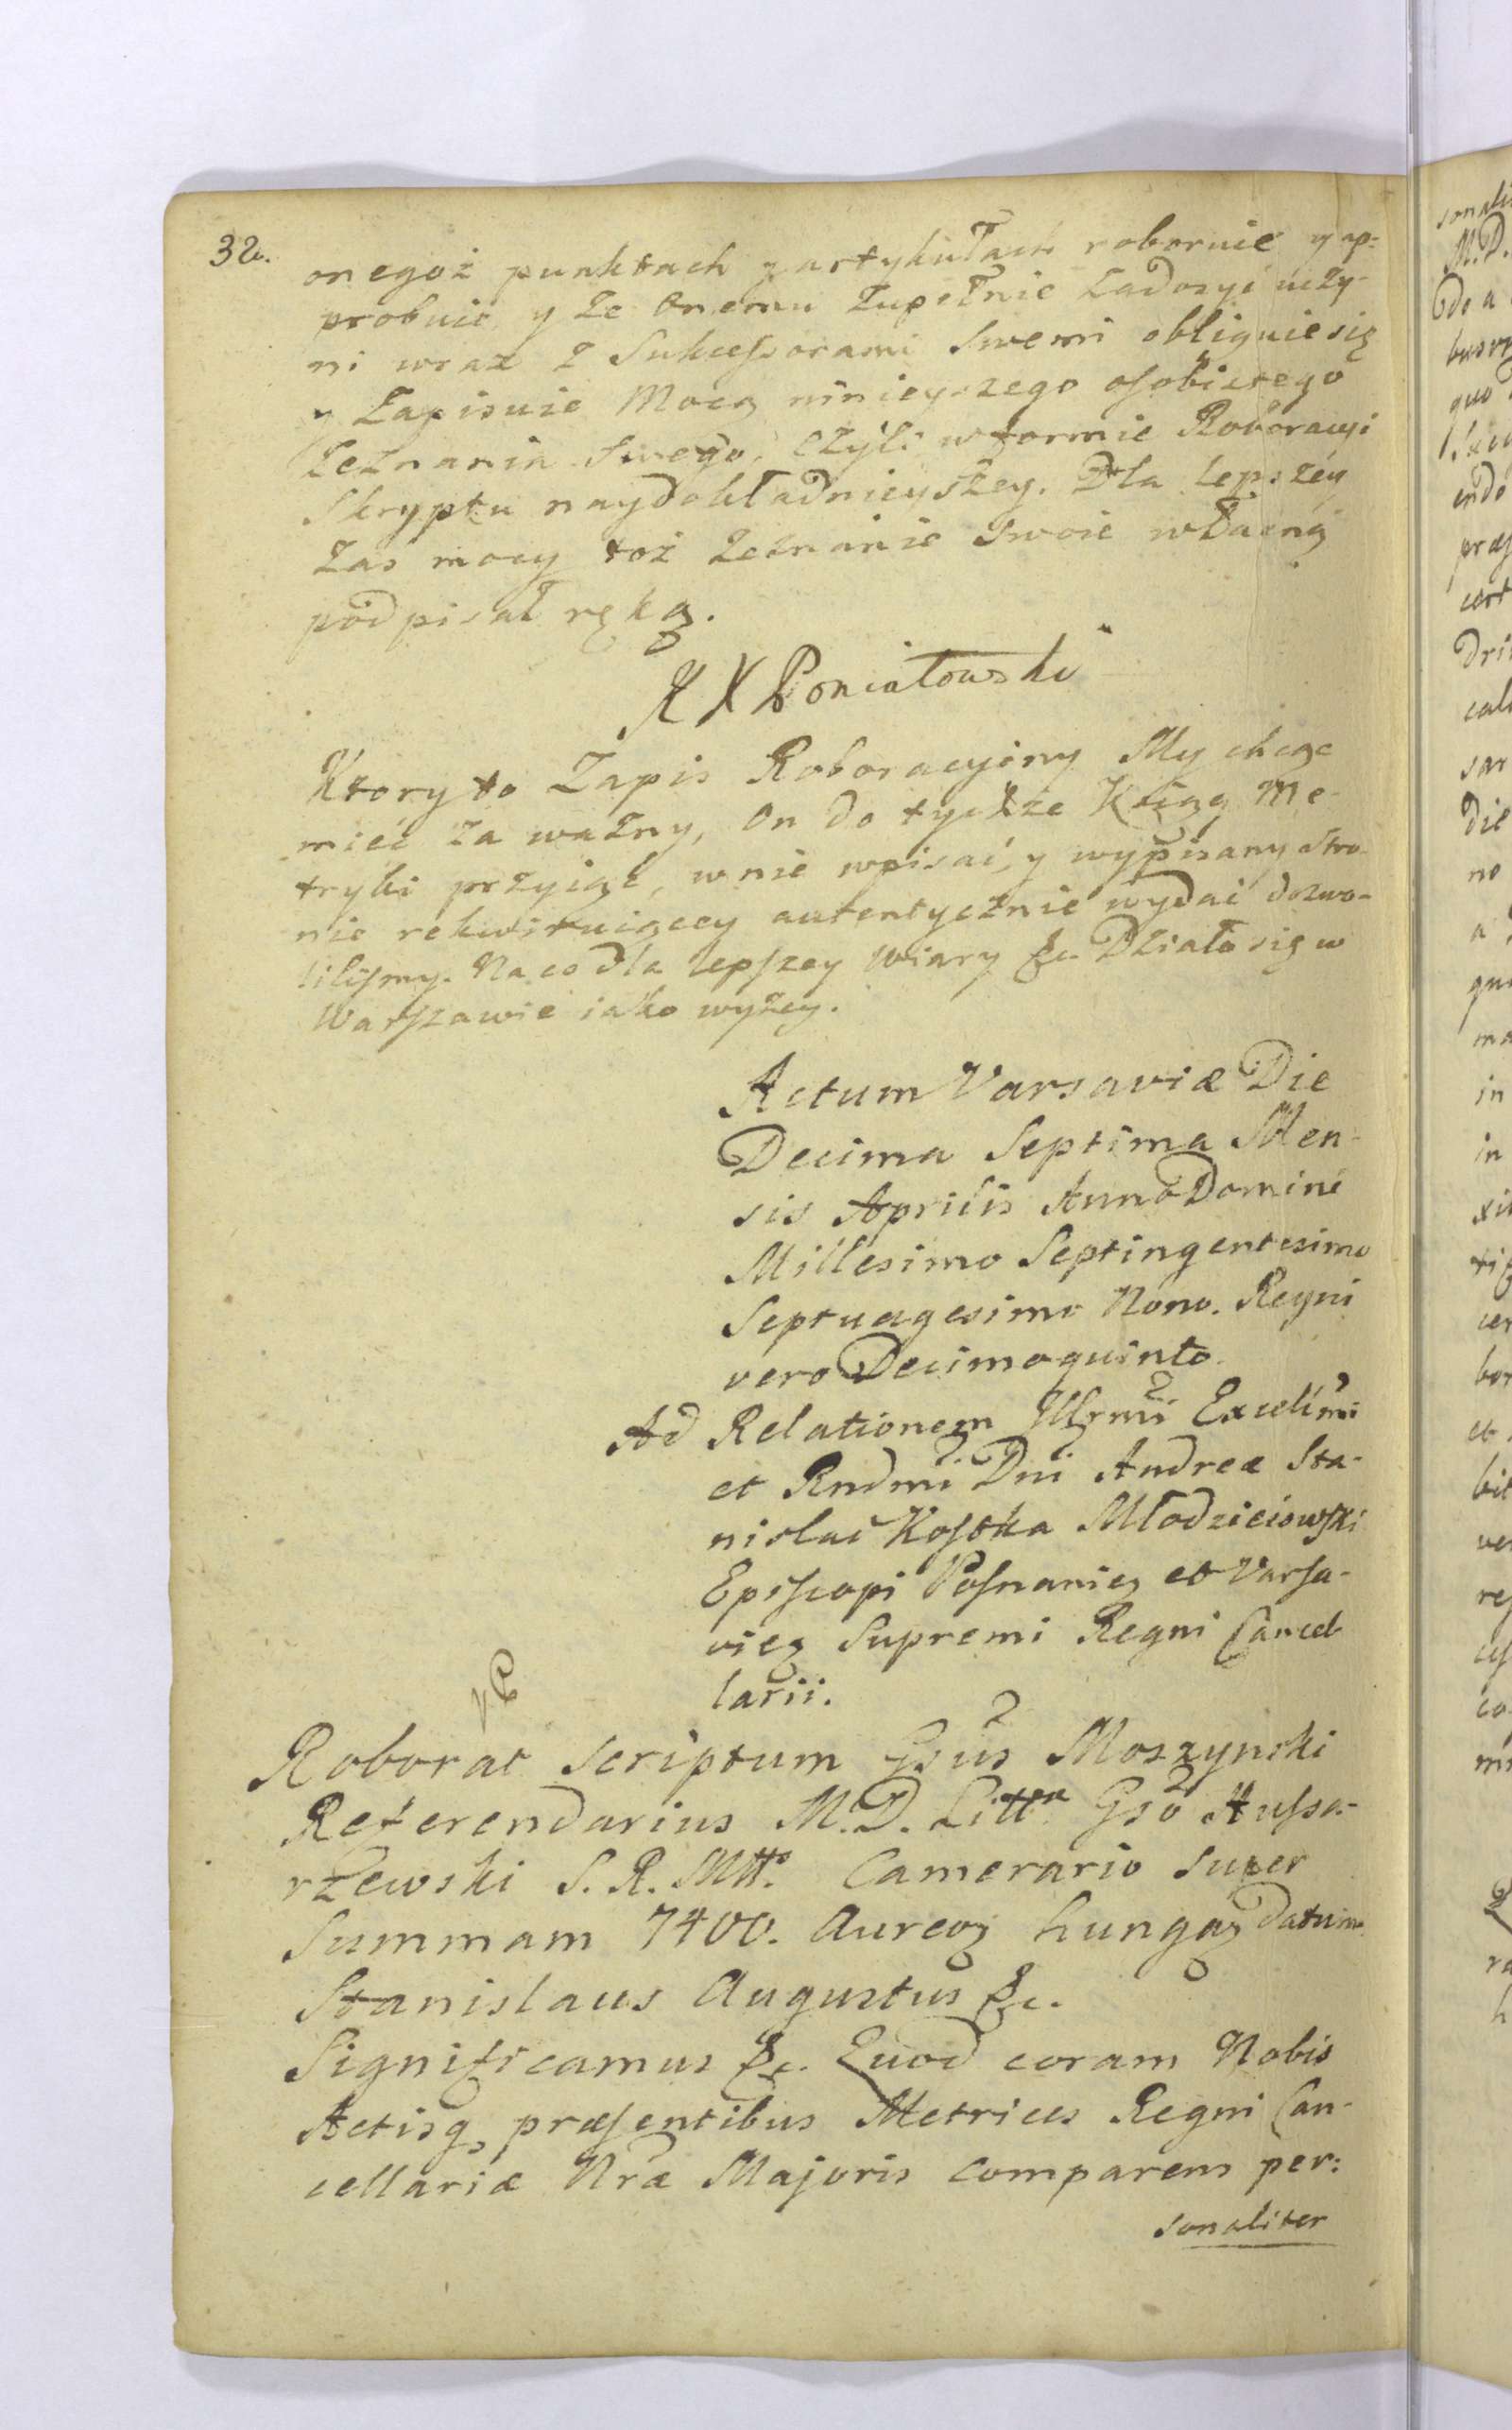 32.
onegoż punktach y artykułach roboruie y ap-
probuie, y że onemu zupełnie zadosyć uczy-
ni wraz z Sukcessorami Swemi obliguie się
y Zapisuie Mocą ninieyszego osobistego
Zeznania Swego, czyli w formie Roboracyi
Skryptu naydokładnieyszey. Dla lepszey
Zas mocy toż Zeznanie Swoie własną
podpisał ręką.
A X Poniatowski
Ktory to Zapis Roboracyiny My chcąc
mieć za ważny, on do tychże Xsiąg Me-
tryki przyiąć, w nie wpisać, y wypisany stro-
nie rekwiruiącey autentycznie wydać dozwo-
lilismy. Na co dla lepszey wiary &c. Działo się w
Warszawie iako wyżey.
Actum Varsaviæ Die
Decima Septima Men-
sis Aprilis Anno Domini
Millesimo Septingentesimo
Septuagesimo Nono. Regni
vero Decimoquinto.
Ad Relationem Illrmi Excellmi
et Rndmi Dni Andreæ Sta-
nislai Kostka Młodzieiowski
Episcopi Posnanien et Varsa-
vien Supremi Regni Cancel-
larii.
Roborat Scriptum Gsus Moszynski
Referendarius M.D. Littu Gso Hussa-
rzewski S. R. Mtti Camerario super
Summam 7400. Aureor hungar datum
Stanislaus Augustus &c.
Significamus &c. Quod coram Nobis
Actisq præsentibus Metrices Regni Can-
cellariæ Nræ Majoris comparens per:
sonaliter